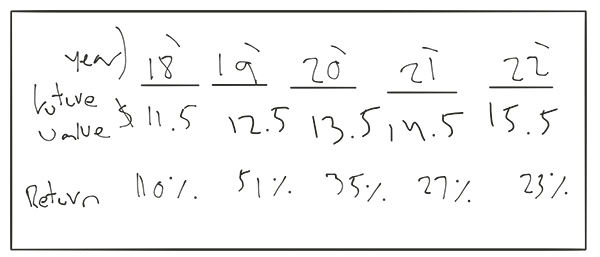 year) 18 19 20 21 22
Future
value $ 11.5 12.5 13.5 14.5 15.5
Return 110% 51% 35% 27% 23%